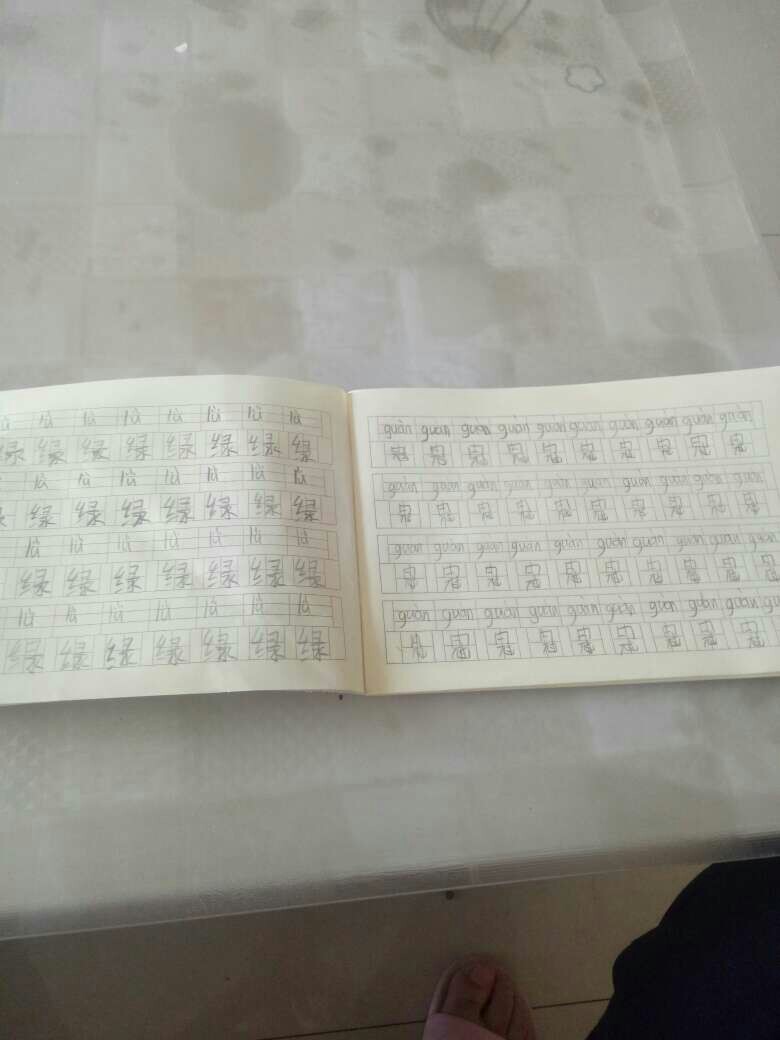 lǜ lǜ lǜ lǜ lǜ lǜ lǜ
绿 绿 绿 绿 绿 绿 绿 绿
lǜ lǜ lǜ lǜ lǜ lǜ lǜ
绿 绿 绿 绿 绿 绿 绿
lǜ lǜ lǜ lǜ lǜ lǜ lǜ
绿 绿 绿 绿 绿 绿 绿
lǜ lǜ lǜ lǜ lǜ lǜ lǜ
绿 绿 绿 绿 绿 绿 绿
guàn guàn guàn guàn guàn guàn guàn guàn guàn guàn
冠 冠 冠 冠 冠 冠 冠 冠 冠 冠
guàn guàn guàn guàn guàn guàn guàn guàn guàn guàn
冠 冠 冠 冠 冠 冠 冠 冠 冠 冠
guàn guàn guàn guàn guàn guàn guàn guàn guàn guàn
冠 冠 冠 冠 冠 冠 冠 冠 冠 冠
guàn guàn guàn guàn guàn guàn guàn guàn guàn
冠 冠 冠 冠 冠 冠 冠 冠 冠